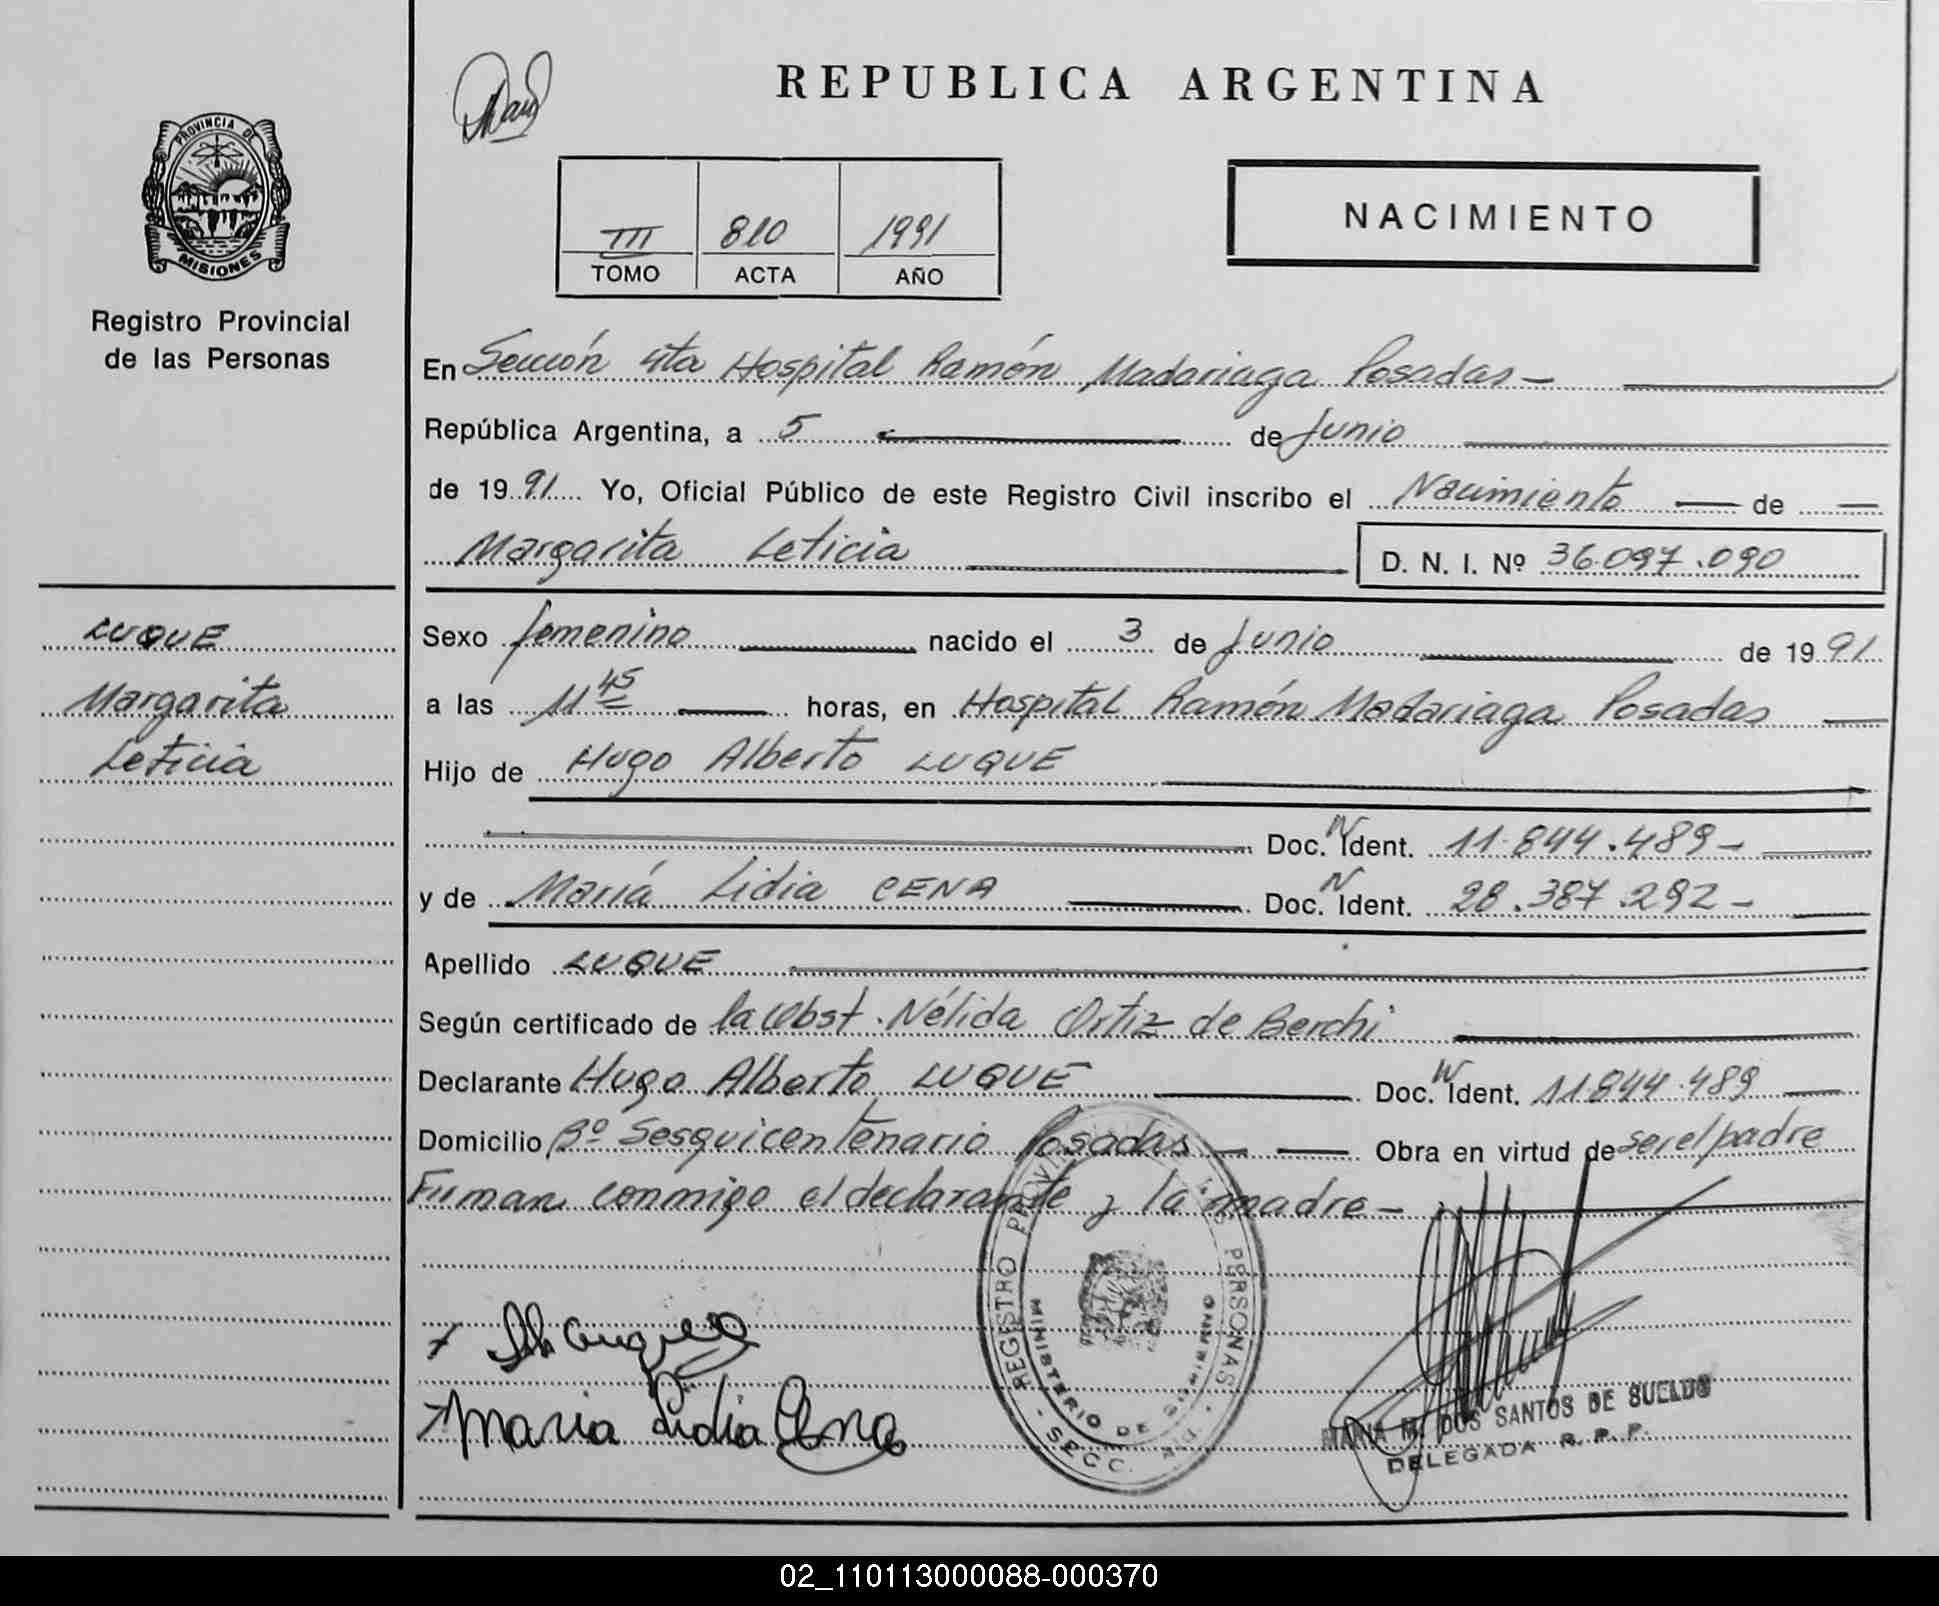 REPUBLICA ARGENTINA
PROVINCIA DE
MISIONES
Registro Provincial
de las Personas
III 810 1991
TOMO ACTA AÑO
NACIMIENTO
En Sección 4ta Hospital Ramón Madariaga Posadas -
República Argentina, a 5 de Junio
de 1991 Yo, Oficial Público de este Registro Civil inscribo el Nacimiento de
Margarita Leticia D. N. I. Nº 36.097.090
LUQUE
Margarita
Leticia
Sexo femenino nacido el 3 de Junio de 1991
a las 11 45 horas, en Hospital Ramón Madariaga Posadas
Hijo de Hugo Alberto LUQUE
Doc. N Ident. 11.844.489 -
y de María Lidia CENA Doc. N Ident. 28.387.292 -
Apellido LUQUE
Según certificado de la Obst. Nélida Ortiz de Berchi
Declarante Hugo Alberto LUQUE Doc. N Ident. 11844.489
Domicilio Bº Sesquicentenario Posadas Obra en virtud de ser el padre
Firman conmigo el declarante y la madre -
Maria Lidia Cena
REGISTRO PROVINCIAL DE LAS PERSONAS
MINISTERIO DE GOBIERNO
SECC.
MARIA M. DOS SANTOS DE SUELDO
DELEGADA R. P. P.
02_110113000088-000370